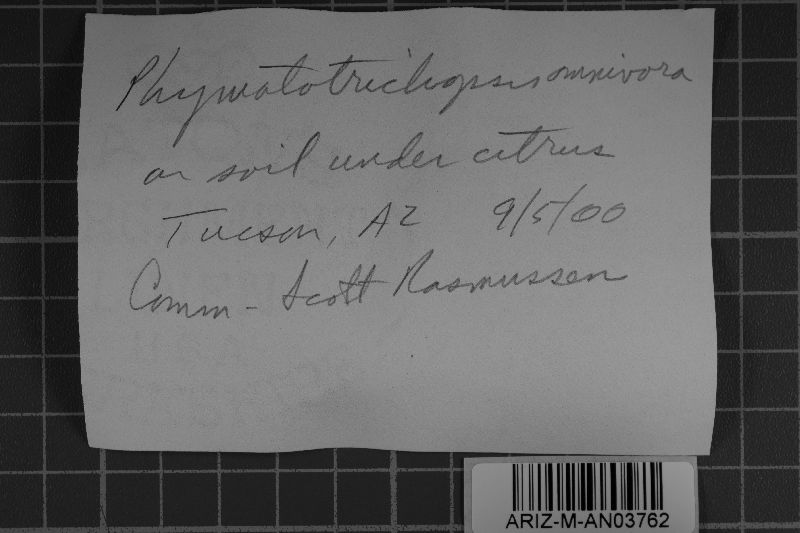 Phymatotrichopsis omnivora
on soil under citrus
Tucson, AZ 9/5/00
Comm - Scott Rasmussen
ARIZ-M-AN03762